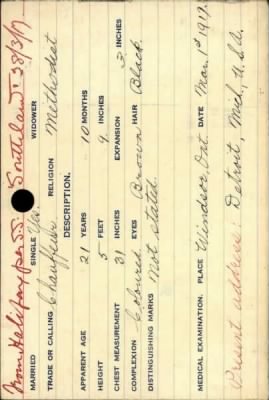 From Halifax per S.S. "Southland" 28/3/17
MARRIED SINGLE Yes. WIDOWER
TRADE OR CALLING Chauffeur RELIGION Methodist
DESCRIPTION.
APPARENT AGE 21 YEARS 10 MONTHS
HEIGHT 5 FEET 9 INCHES
CHEST MEASUREMENT 31 INCHES EXPANSION 3 INCHES
COMPLEXION Coloured EYES Brown HAIR Black.
DISTINGUISHING MARKS Not stated.
MEDICAL EXAMINATION. PLACE Windsor, Ont DATE Mar. 1st 1917.
Present address: Detroit, Mich., U.S.A.